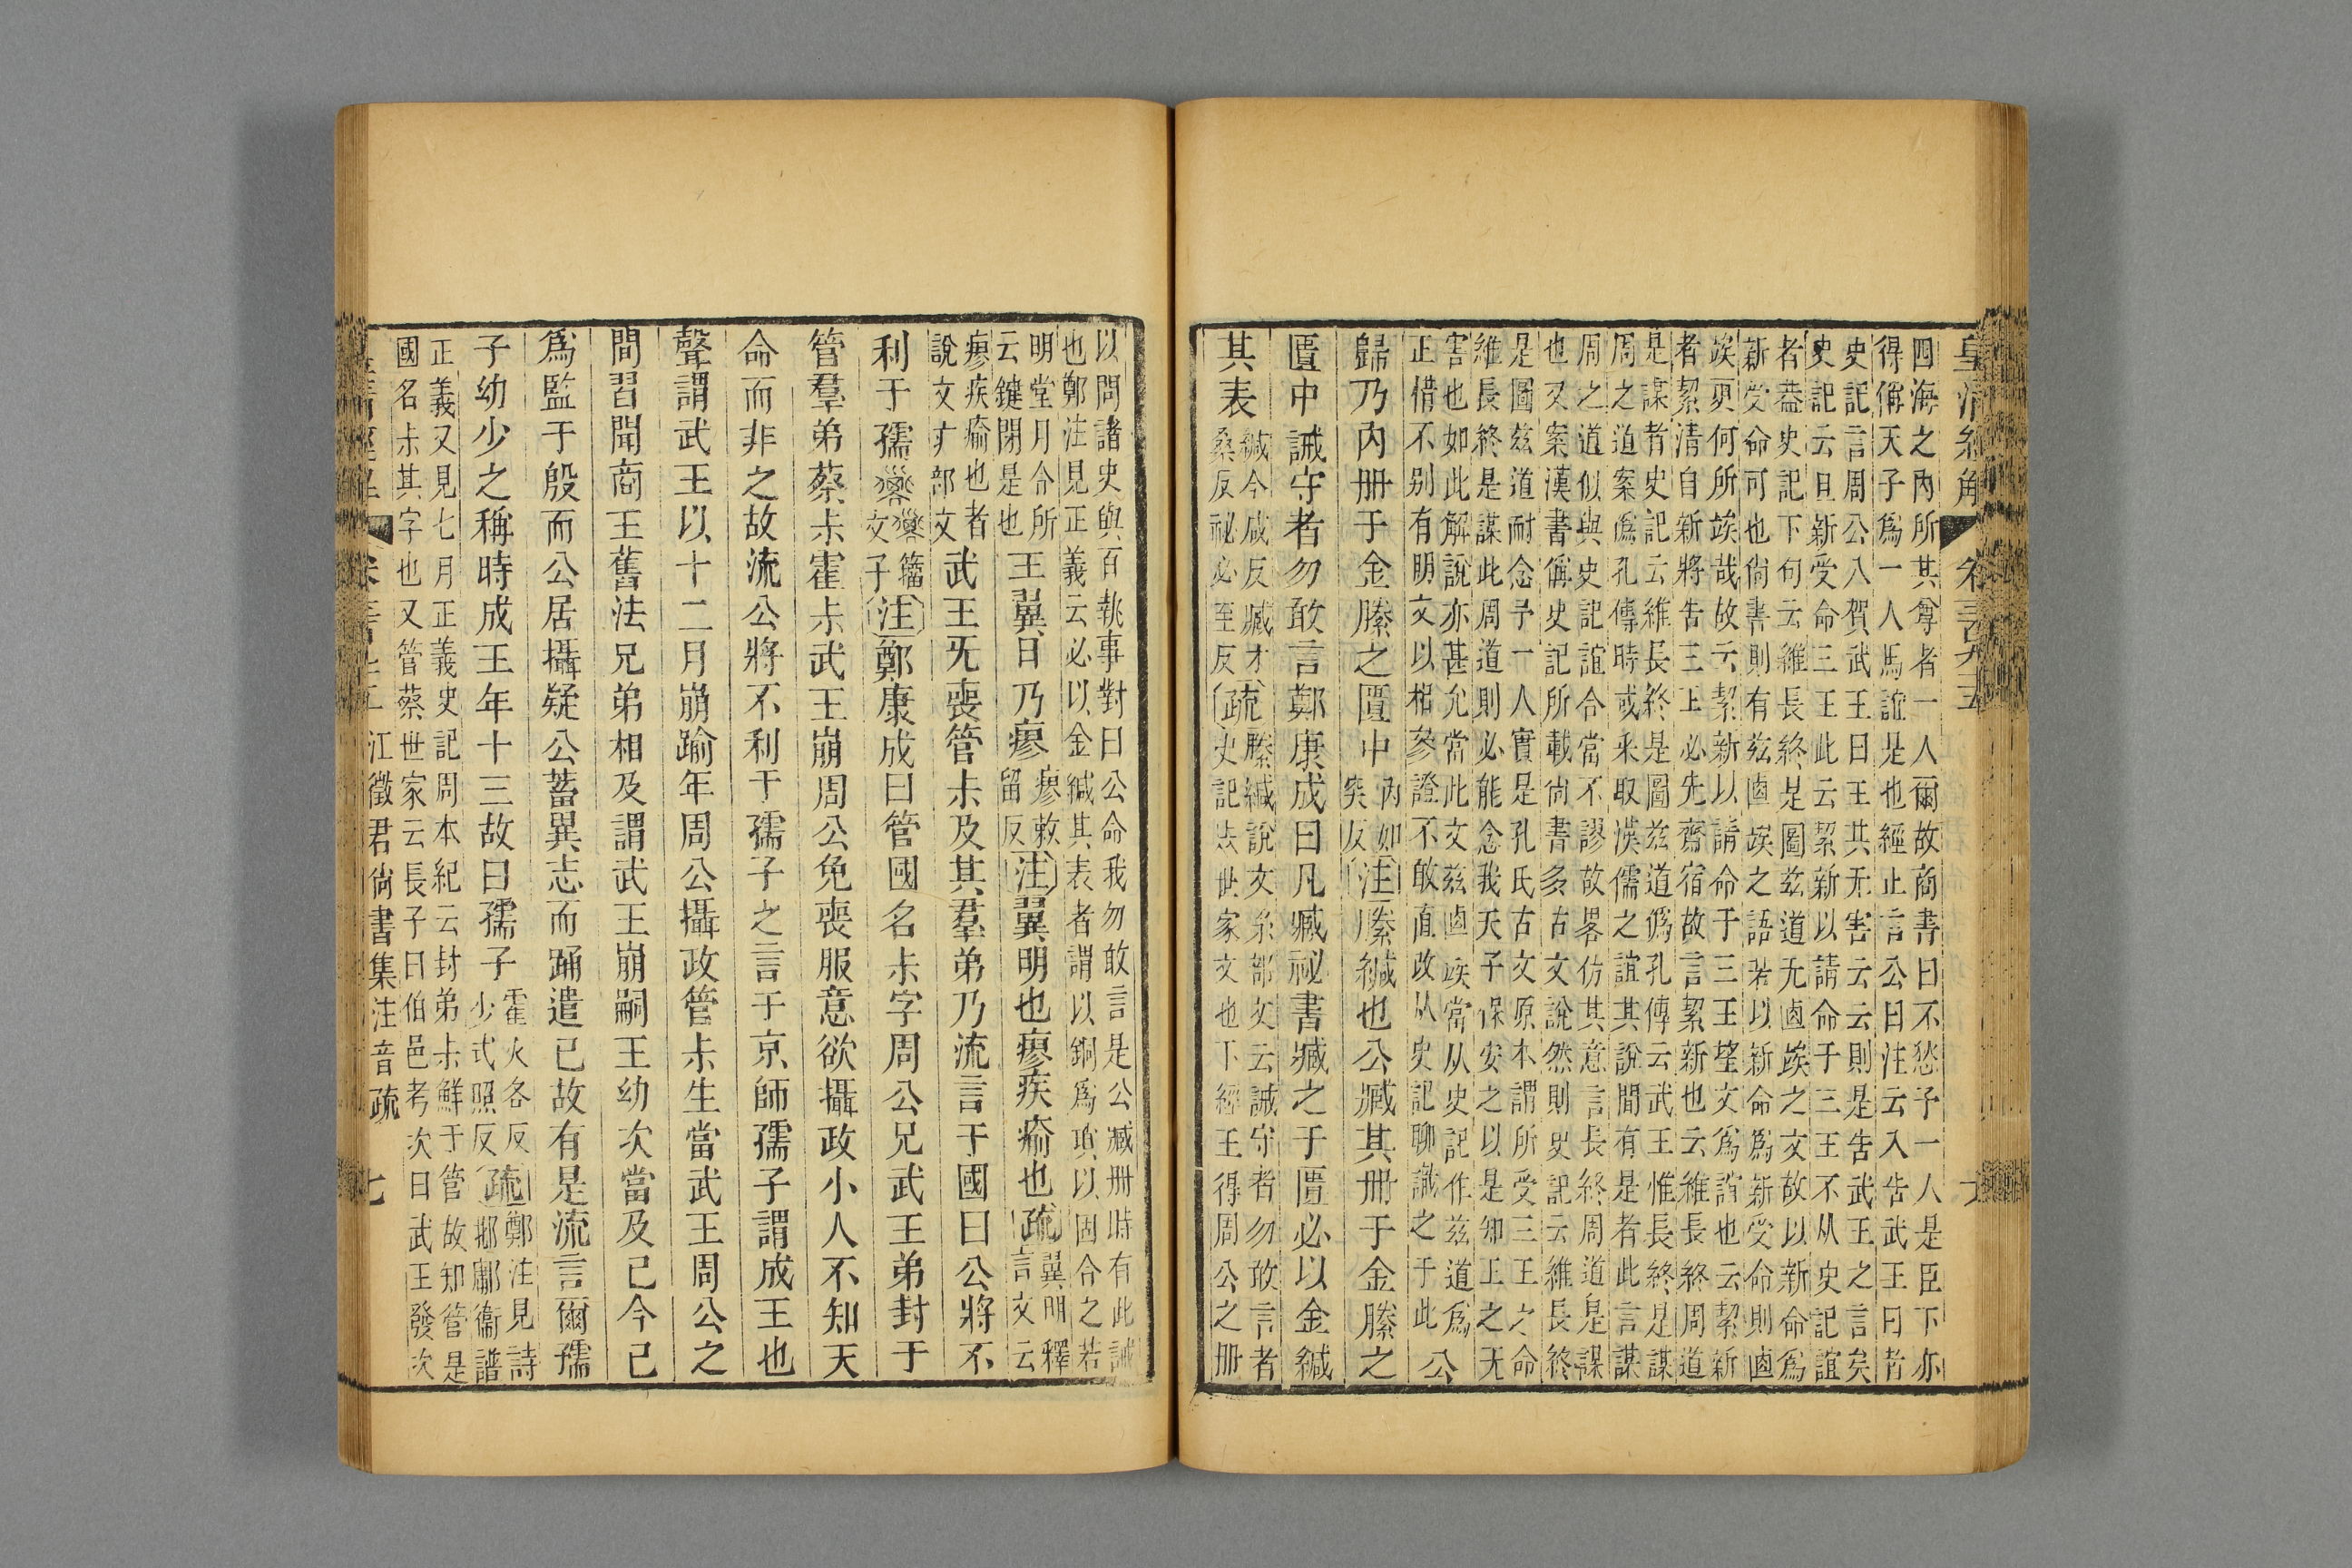 皇清經解 卷三百九十五
四海之內所其尊者一人爾故商書曰不愁予一人是臣下亦
得偁天子爲一人馬誼是也經止言公曰注云入告武王曰者
史記言周公入賀武王曰王其无害云云則是告武王之言矣
史記云旦新受命三王此云絜新以請命于三王不从史記誼
者葢史記下句云維長終是圖兹道无卥竢之文故以新命爲
新受命可也尙書則有兹卥竢之語若以新命爲新受命則卥
竢更何所竢哉故云絜新以請命于三王望文爲誼也云絜新
者絜清自新將告三王必先齋宿故言絜新也云維長終周道
是謀者史記云維長終是圖兹道僞孔傳云武王惟長終是謀
周之道案僞孔傳時或采取漢儒之誼其說閒有是者此言謀
周之道似與史記誼合當不謬故畧仿其意言長終周道是謀
也又案漢書偁史記所載尙書多古文說然則史記云維長終
是圖兹道耐念予一人實是孔氏古文原本謂所受三王之命
維長終是謀此周道則必能念我天子保安之以是知王之无
害也如此解說亦甚允當此文兹卥竢當从史記作兹道爲
正惜不别有明文以相參證不敢直改从史記聊識之于此 公
歸乃內册于金縢之匱中 內如
突反 注 縢緘也公臧其册于金縢之
匱中誡守者勿敢言鄭康成曰凡臧祕書臧之于匱必以金緘
其表 緘今咸反臧才
桑反祕必至反 疏 縢緘說文糸部文云誡守者勿敢言者
史記魯世家文也下經王得周公之册
以問諸史與百執事對曰公命我勿敢言是公臧册時有此誡
也鄭注見正義云必以金緘其表者謂以銅爲項以固合之若
明堂月令所
云鍵閉是也 王翼日乃瘳 瘳敕
留反 注 翼明也瘳疾瘉也 疏 翼明釋
言文云
瘳疾瘉也者
說文疒部文 武王旣喪管未及其羣弟乃流言于國曰公將不
利于孺子 注 鄭康成曰管國名未字周公兄武王弟封于
管羣弟蔡未霍未武王崩周公免喪服意欲攝政小人不知天
命而非之故流公將不利于孺子之言于京師孺子謂成王也
聲謂武王以十二月崩踰年周公攝政管未生當武王周公之
間習聞商王舊法兄弟相及謂武王崩嗣王幼次當及己今己
爲監于殷而公居攝疑公蓄異志而踊遣已故有是流言爾孺
子幼少之稱時成王年十三故曰孺子 霍火各反
少式照反 疏 鄭注見詩
邶鄘衞譜
正義又見七月正義史記周本紀云封弟未鮮于管故知管是
國名未其字也又管蔡世家云長子曰伯邑考次曰武王發次
江徵君尙書集注音疏 七